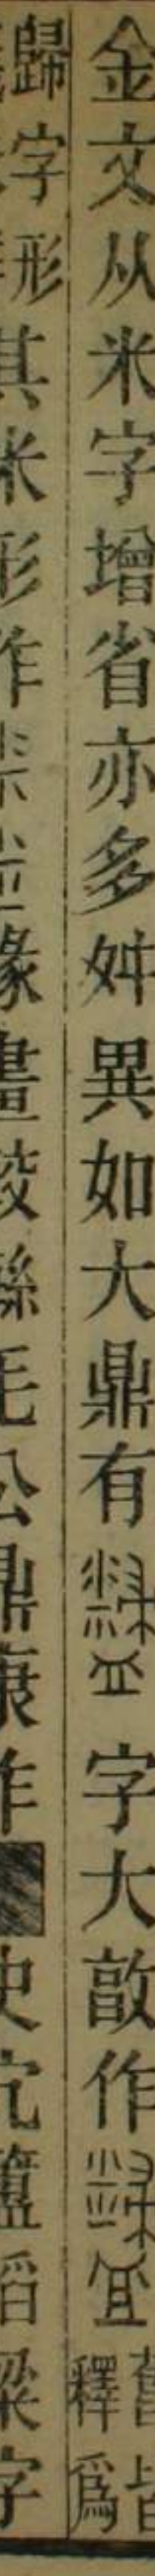 金文从米字增省亦多舛異如大鼎有字大敼作舊皆釋爲
歸字形其米形作緣畫較緐毛公鼎康作史宂簠稻粱字